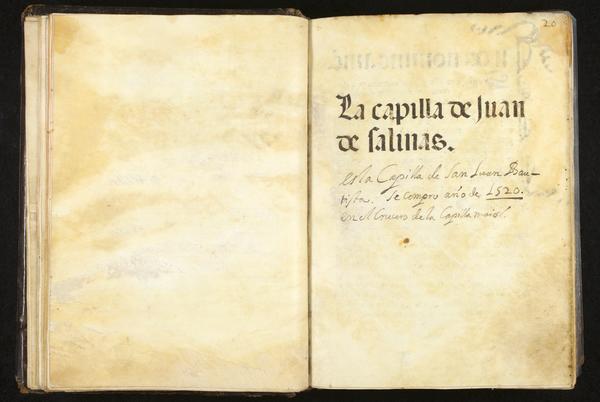 20
La capilla de Juan
de salinas.
es la Capilla de San Juan Bau-
tista. se compro año de 1520.
en el Crucero de la Capilla maior.